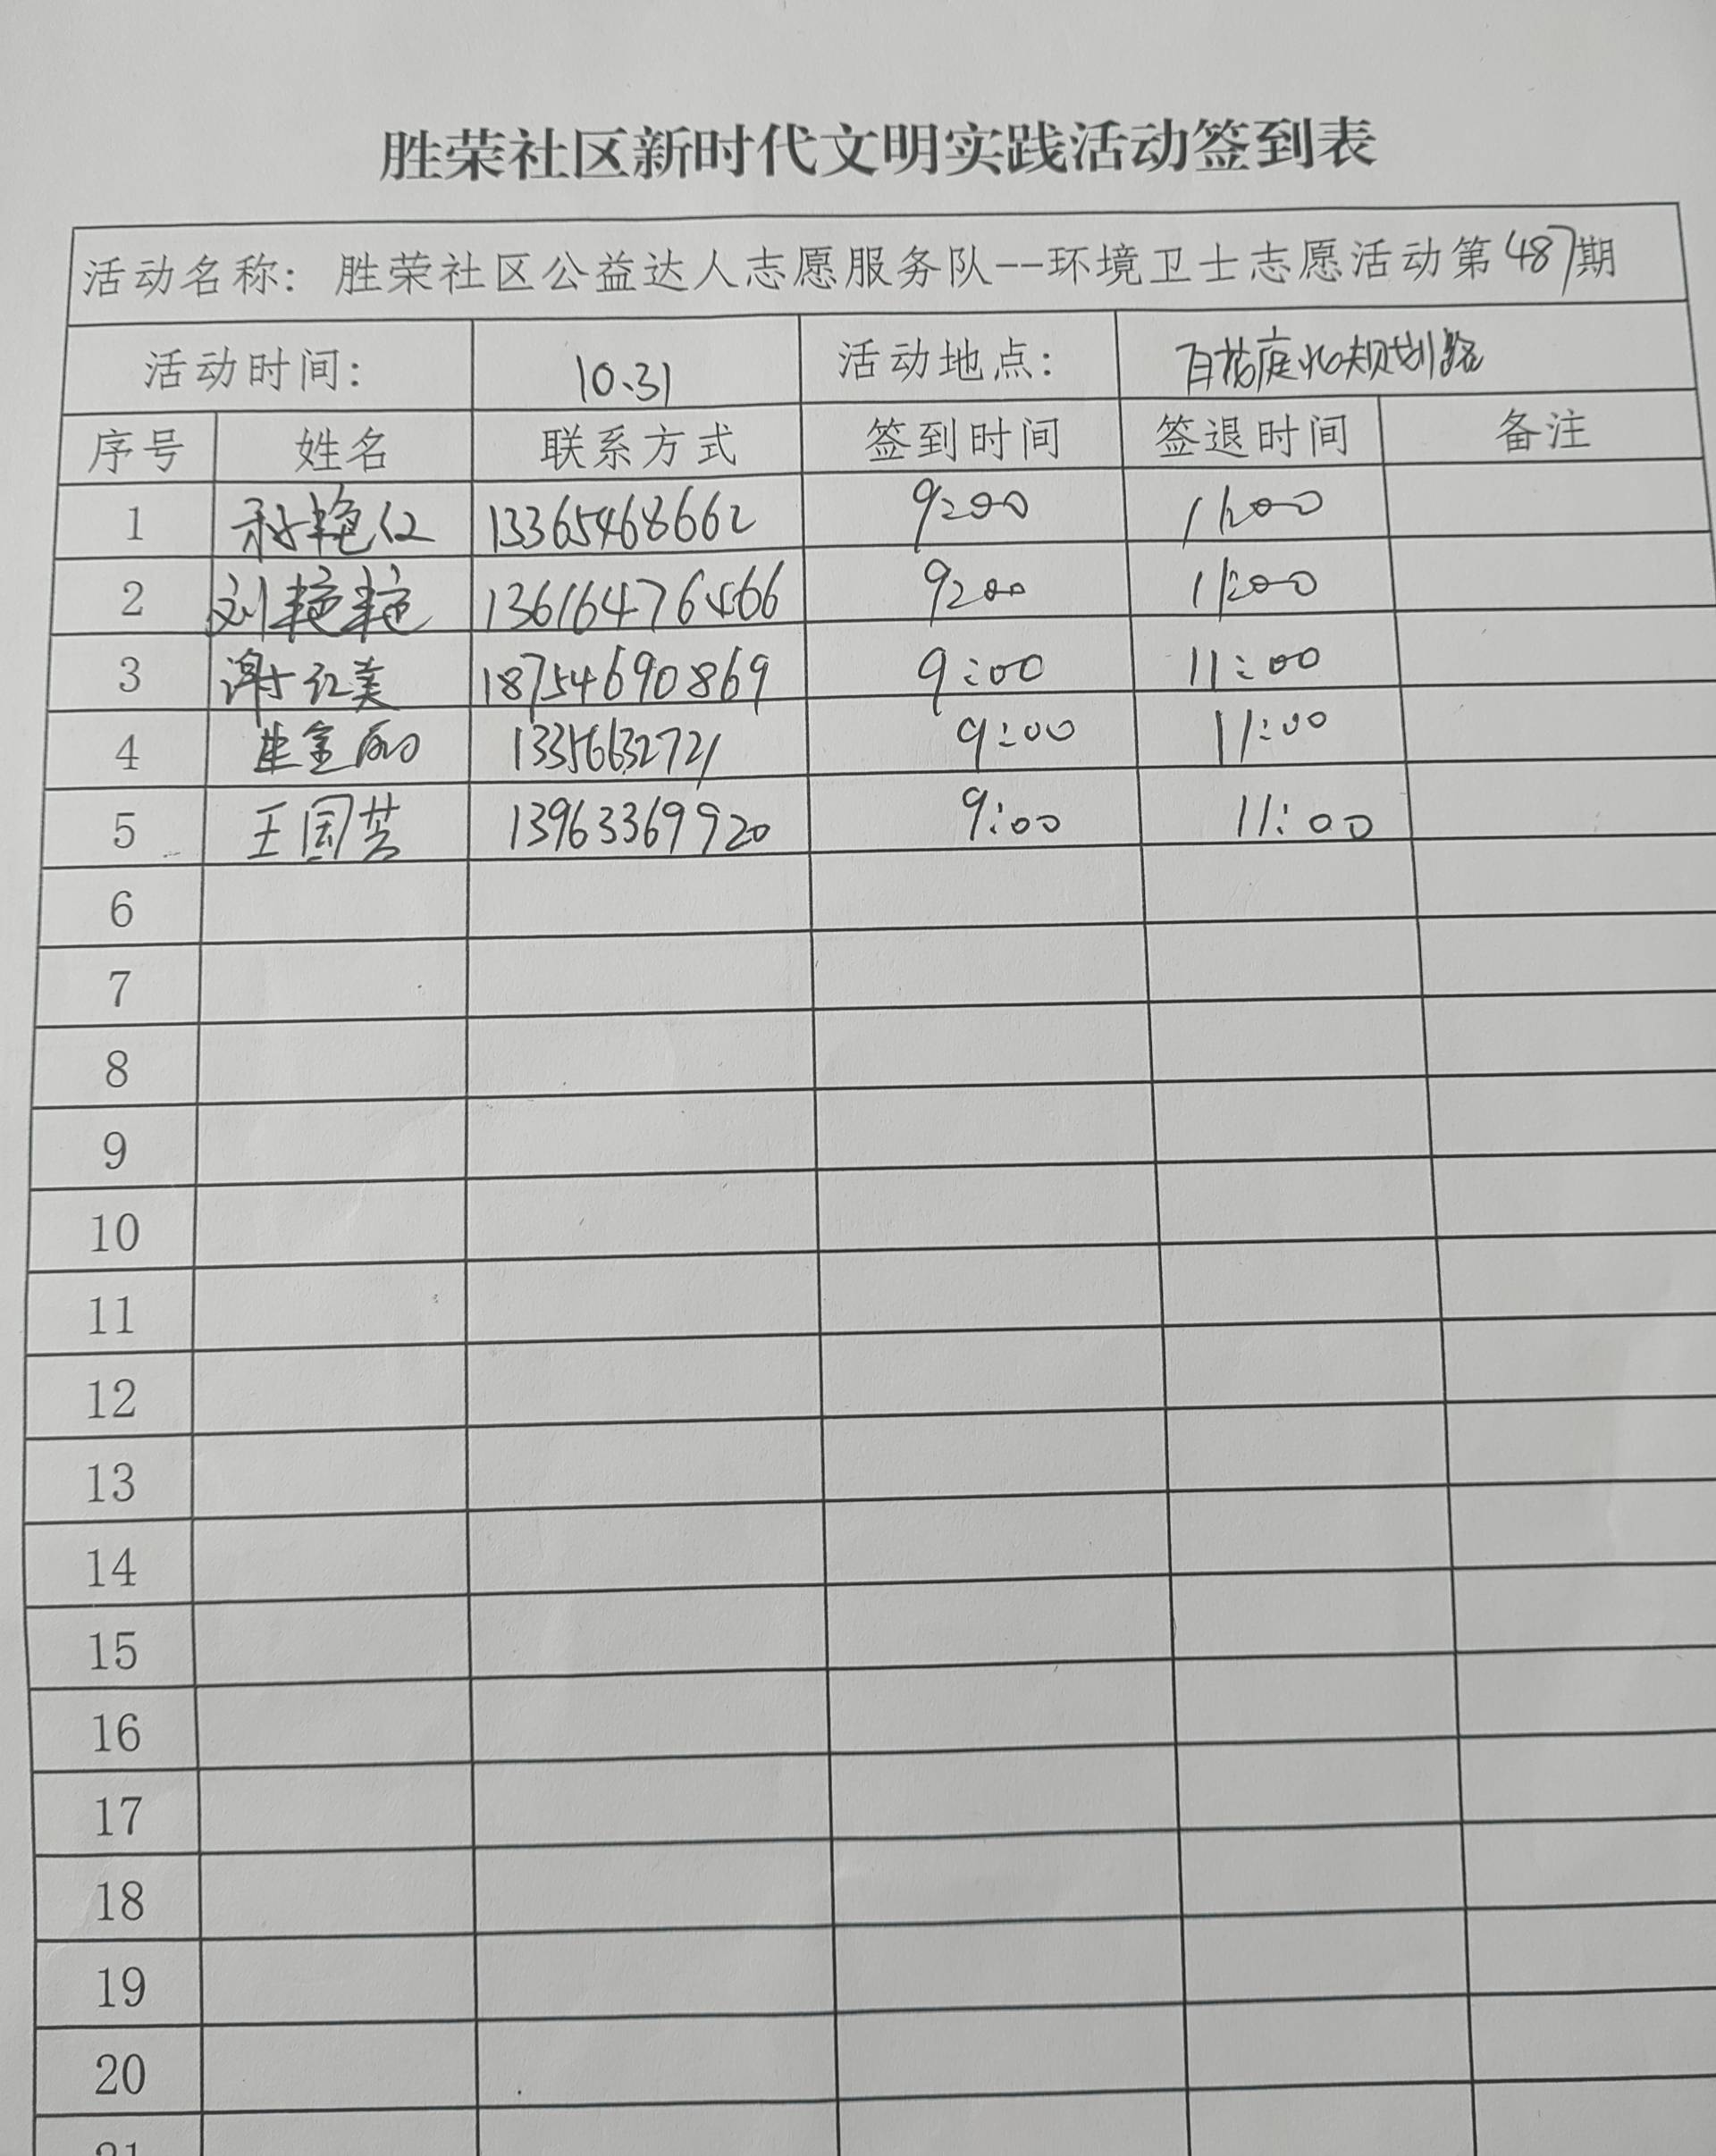 胜荣社区新时代文明实践活动签到表
活动名称：胜荣社区公益达人志愿服务队--环境卫士志愿活动第487期
活动时间： 10.31 活动地点： 百花庭北规划路
序号 姓名 联系方式 签到时间 签退时间 备注
1 艳红 13365468662 9:00 11:00
2 刘艳艳 13616476466 9:00 11:00
3 谢红美 18754690869 9:00 11:00
4 金丽 13356632721 9:00 11:00
5 王国芸 13963369920 9:00 11:00
6
7
8
9
10
11
12
13
14
15
16
17
18
19
20
21